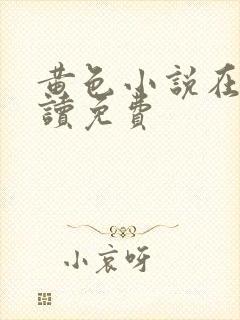 黄色小說在
讀免費
小哀呀